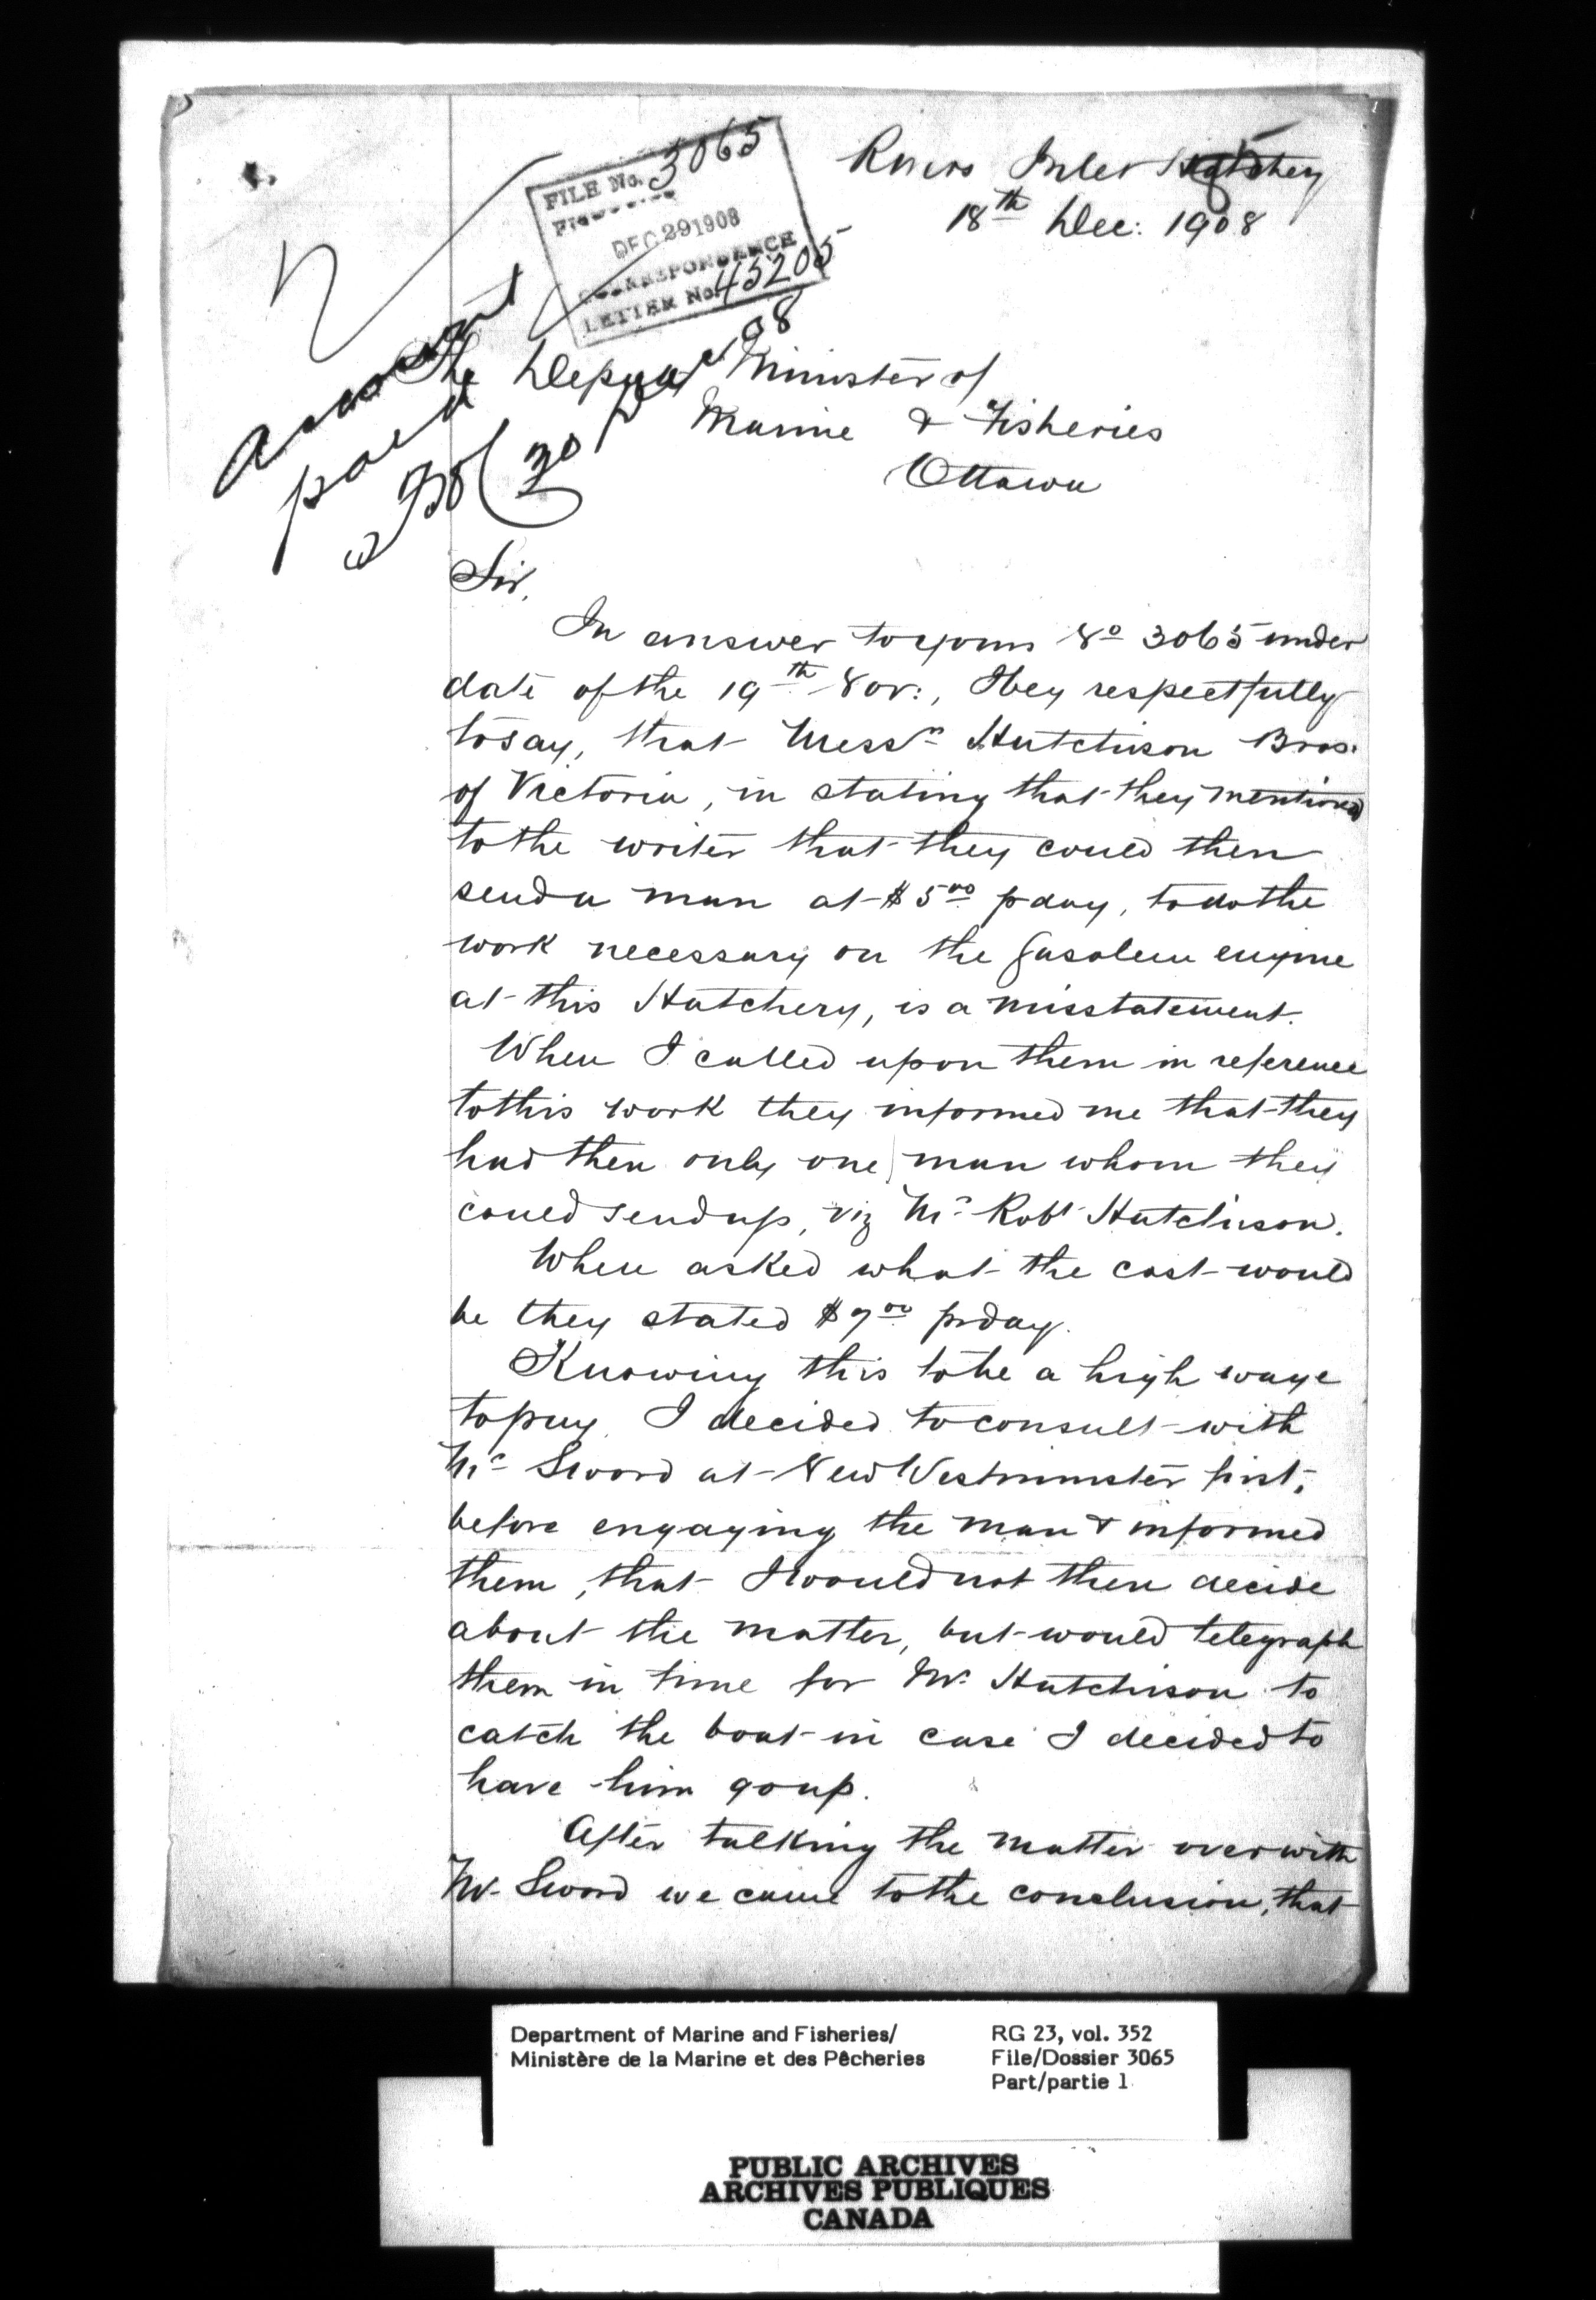 Rivers Inlet Hatchery
18th Dec: 1908
FILE No. 3065
DEC 29 1908
CORRESPONDENCE
LETTER No. 45205
account
paid
30
08
The Deputy Minister of
Marine & Fisheries
Ottawa
Sir,
In answer to yours No 3065 under
date of the 19th Nov:, I beg respectfully
to say, that Messrs Hutchison Bros.
of Victoria, in stating that they mentioned
to the writer that they could then
send a man at $5.00 p day, to do the
work necessary on the Gasolene engine
at this Hatchery, is a misstatement.
When I called upon them in reference
to this work they informed me that they
had then only one man whom they
could send up, viz Mr Robt Hutchison.
When asked what the cost would
be they stated $7.00 pr day.
Knowing this to be a high wage
to pay, I decided to consult with
Mr Sword at New Westminster first,
before engaging the man & informed
them, that I would not then decide
about the matter, but would telegraph
them in time for Mr Hutchison to
catch the boat in case I decided to
have him go up.
After talking the matter over with
Mr Sword we came to the conclusion, that
Department of Marine and Fisheries/
Ministère de la Marine et des Pêcheries
RG 23, vol. 352
File/Dossier 3065
Part/partie 1
PUBLIC ARCHIVES
ARCHIVES PUBLIQUES
CANADA